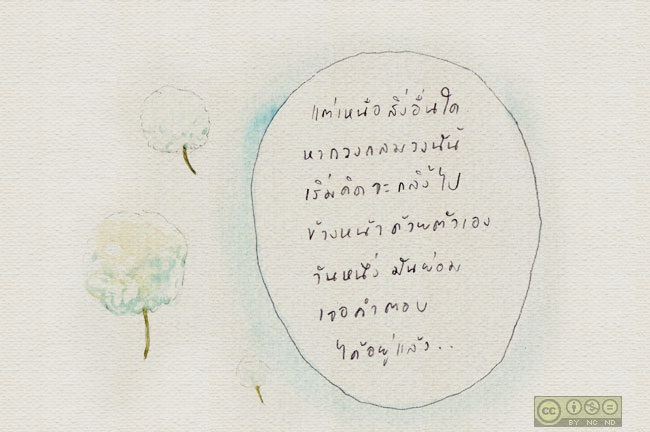 แต่เหนือสิ่งอื่นใด
หากวงกลมวงนั้น
เริ่มคิดจะกลิ้งไป
ข้างหน้าด้วยตัวเอง
วันหนึ่ง มันย่อม
เจอคำตอบ
ได้อยู่แล้ว..
cc
BY NC ND